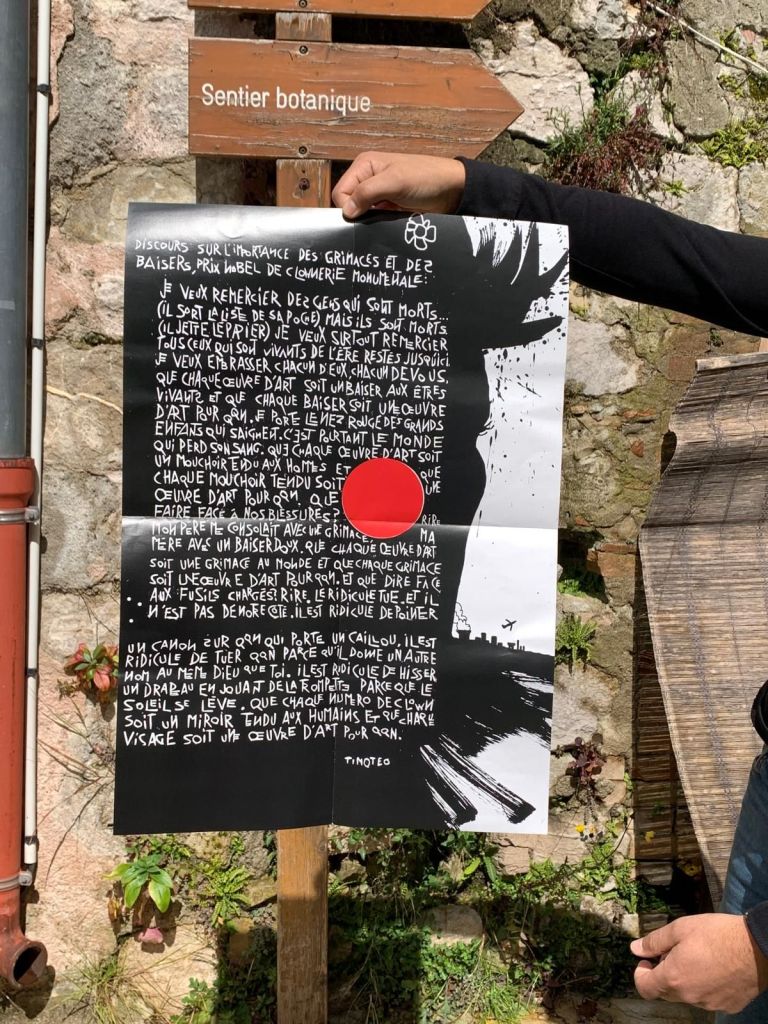 Sentier botanique
DISCOURS SUR L'IMPORTANCE DES GRIMACES ET DES
BAISERS, PRIX NOBEL DE CLOWNERIE MONUMENTALE:
JE VEUX REMERCIER DES GENS QUI SONT MORTS...
(IL SORT LA LISTE DE SA POCHE) MAIS ILS SONT MORTS.
(IL JETTE LE PAPIER) JE VEUX SURTOUT REMERCIER
TOUS CEUX QUI SONT VIVANTS DE L'ÊTRE RESTÉS JUSQU'ICI.
JE VEUX EMBRASSER CHACUN D'EUX, CHACUN DE VOUS.
QUE CHAQUE ŒUVRE D'ART SOIT UN BAISER AUX ÊTRES
VIVANTS ET QUE CHAQUE BAISER SOIT UNE ŒUVRE
D'ART POUR QQN. JE PORTE LE NEZ ROUGE DES GRANDS
ENFANTS QUI SAIGNENT. C'EST POURTANT LE MONDE
QUI PERD SON SANG. QUE CHAQUE ŒUVRE D'ART SOIT
UN MOUCHOIR TENDU AUX HOMMES ET QUE
CHAQUE MOUCHOIR TENDU SOIT UNE
ŒUVRE D'ART POUR QQN. QUE
FAIRE FACE À NOS BLESSURES? RIRE
MON PÈRE ME CONSOLAIT AVEC UNE GRIMACE. MA
MÈRE AVEC UN BAISER DOUX. QUE CHAQUE ŒUVRE D'ART
SOIT UNE GRIMACE AU MONDE ET QUE CHAQUE GRIMACE
SOIT UNE ŒUVRE D'ART POUR QQN. ET QUE DIRE FACE
AUX FUSILS CHARGÉS? RIRE. LE RIDICULE TUE. ET IL
N'EST PAS DE NOTRE CÔTÉ. IL EST RIDICULE DE POINTER
UN CANON SUR QQN QUI PORTE UN CAILLOU. IL EST
RIDICULE DE TUER QQN PARCE QU'IL DONNE UN AUTRE
NOM AU MÊME DIEU QUE TOI. IL EST RIDICULE DE HISSER
UN DRAPEAU EN JOUANT DE LA TROMPETTE PARCE QUE LE
SOLEIL SE LÈVE. QUE CHAQUE NUMÉRO DE CLOWN
SOIT UN MIROIR TENDU AUX HUMAINS ET QUE CHAQUE
VISAGE SOIT UNE ŒUVRE D'ART POUR QQN.
TINOTEO